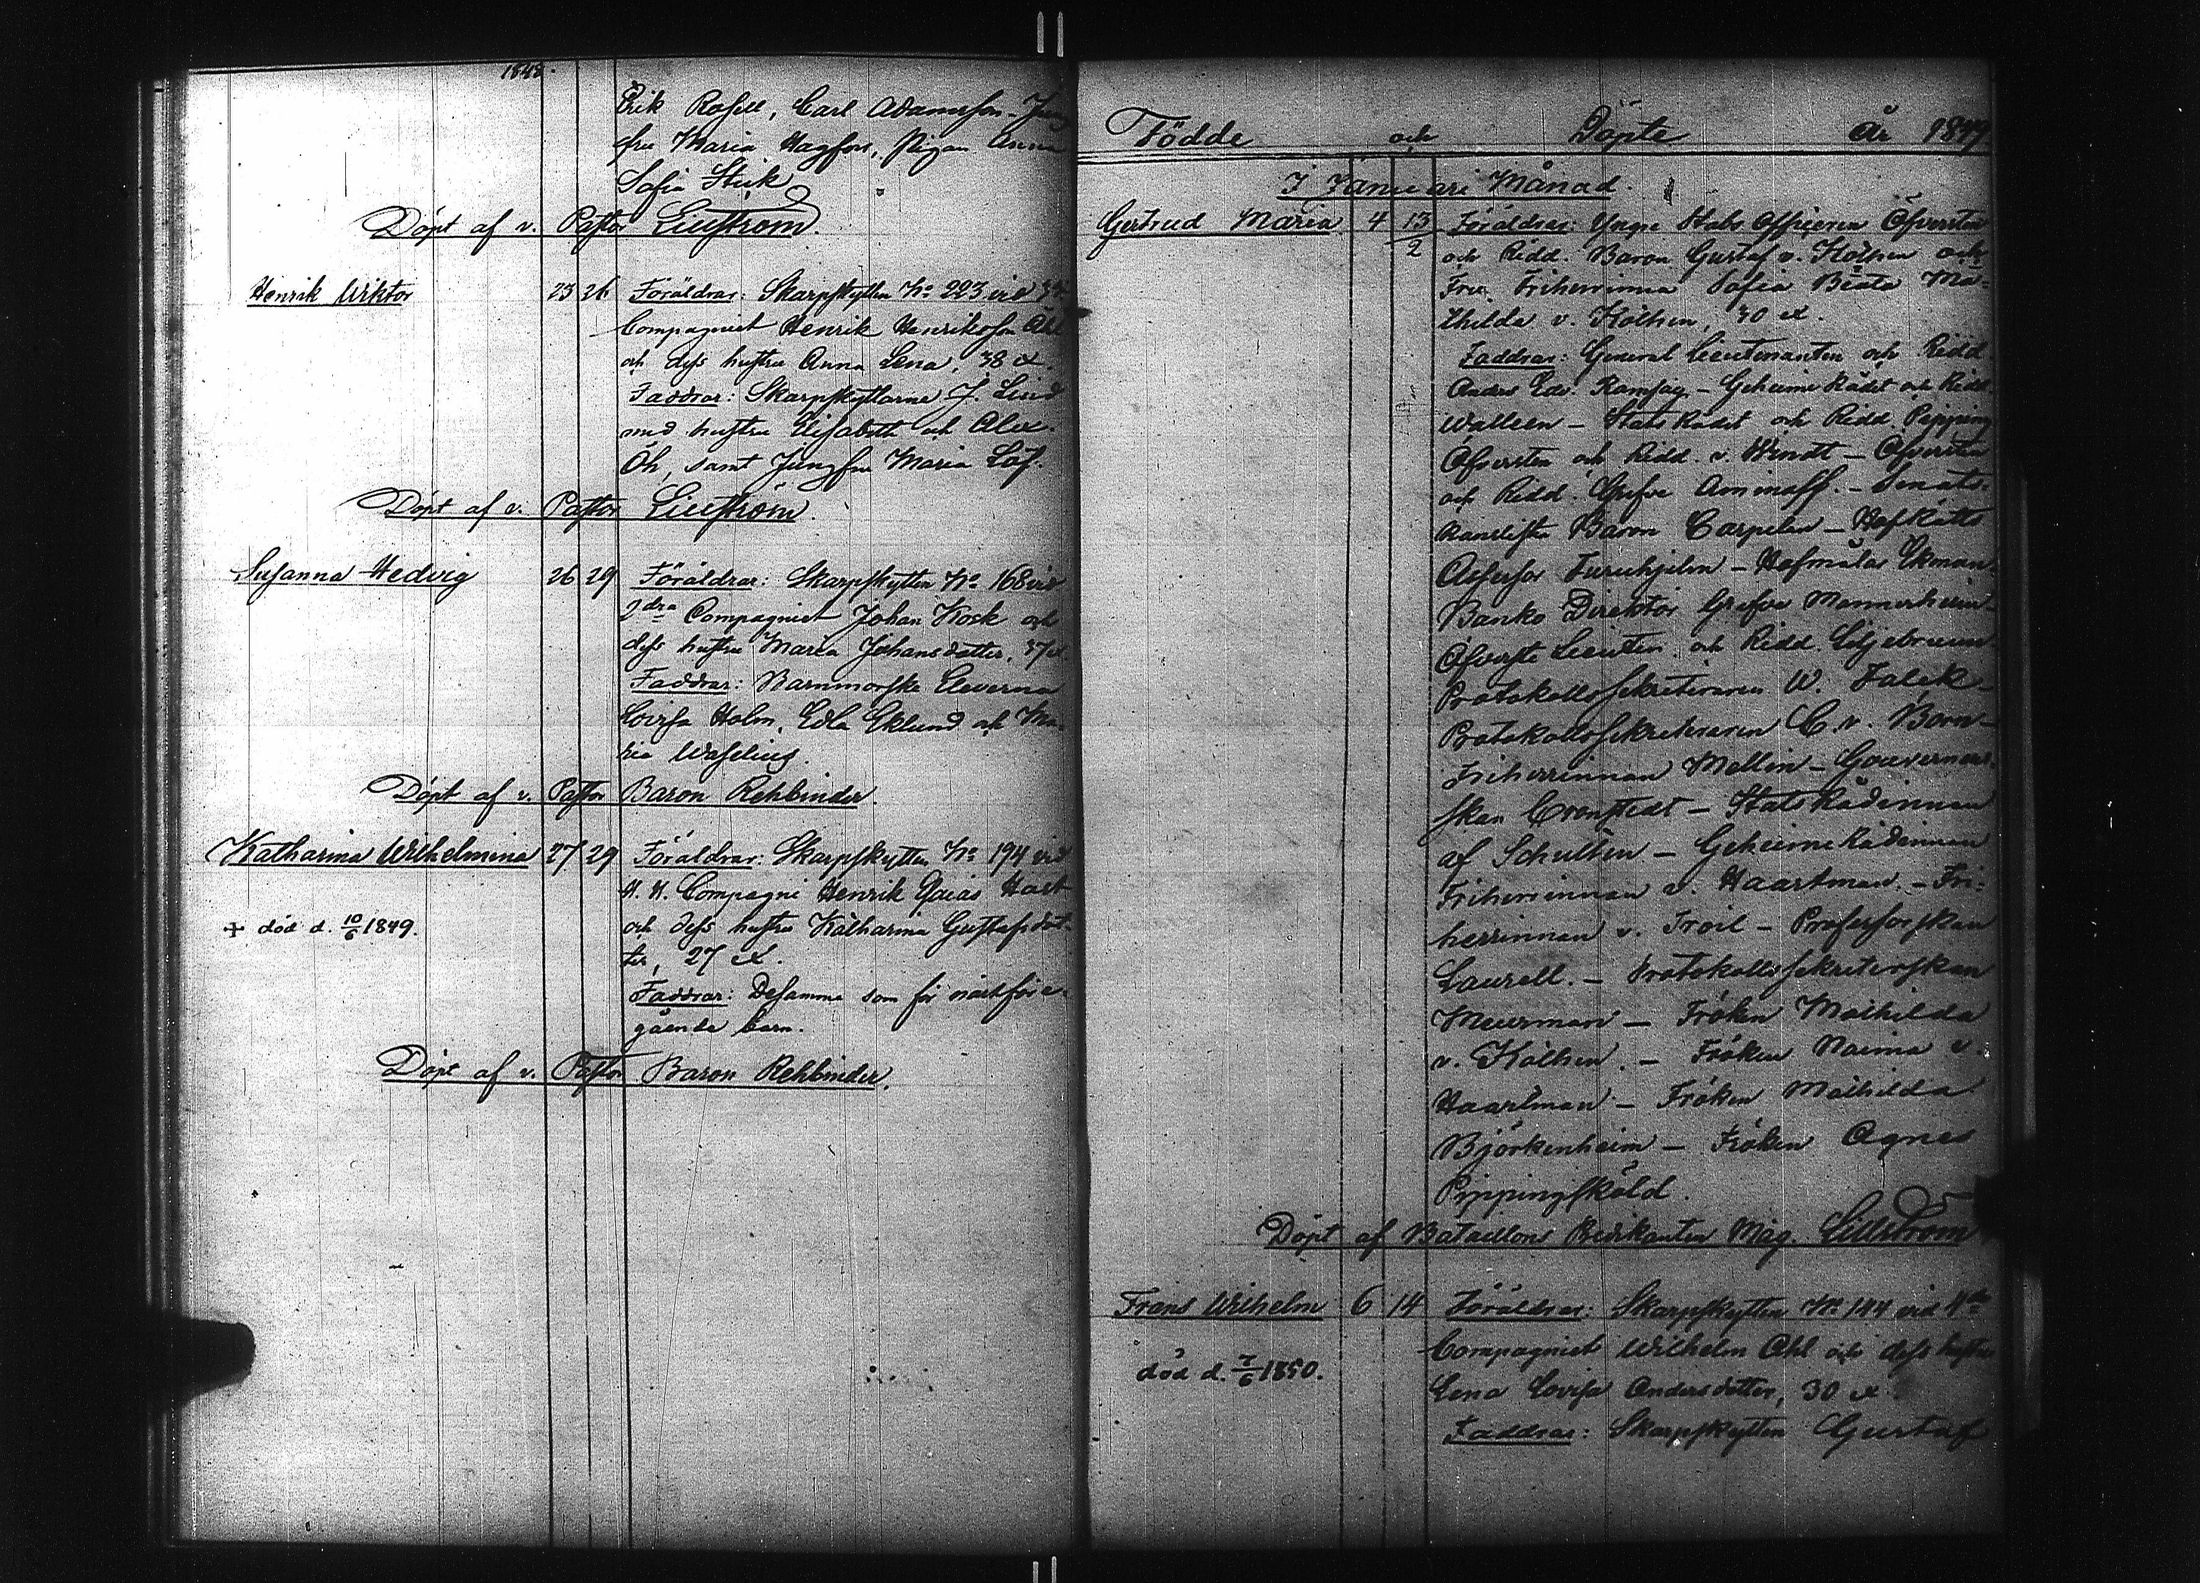 1848.
Erik Rosell, Carl Adamsson - Jung
fru Maria Hagfors, Pigan Anna
Sofia Stick
Döpt af v. Pastor Liuström.
Henrik Wiktor 23 26 Föräldrar: Skarpskytten No 223 vid 3die
Compagniet Henrik Henriksson Ahl
och dess hustru Anna Lena, 38 år.
Faddrar: Skarpskyttarne J. Lind
med hustru Elisabeth och Alex.
Öh, samt Jungfru Maria Löf.
Döpt af v. Pastor Liuström.
Susanna Hedvig 26 29 Föräldrar: Skarpskytten No 168 vid
2dra Compagniet Johan Kock och
dess hustru Maria Johansdotter, 37 år.
Faddrar: Barnmorske Eleverna
Lovisa Holm, Edla Eklund och Ma-
ria Waselius.
Döpt af v. Pastor Baron Rehbinder.
Katharina Wilhelmina 27 29 Föräldrar: Skarpskytten No 194 vid
4. H. Compagni Henrik Esaias Hast
och dess hustru Katharina Gustafsdot-
ter, 27 år.
+ död d. 10/6 1849.
Faddrar: Desamma som för nästföre-
gående barn.
Döpt af v. Pastor Baron Rehbinder.
Födde och Döpte År 1849
I Januari Månad.
Gertrud Maria 4 13/2 Föräldrar: Yngre Stabs Officeren Öfversten
och Ridd. Baron Gustaf v. Kothen och
Fru Friherrinna Sofia Beata Ma-
thilda v Kothen, 30 år.
Faddrar: General Lieutenanten och Ridd.
Anders Edv. Ramsay - Geheime Rådet och Ridd.
Walleen - Stats Rådet och Ridd. Pipping
Öfversten och Ridd. v. Wendt - Öfversten
och Ridd. Grefve Aminoff. - Senats-
kanslisten Baron Carpelan - Hofrätts
Assessor Furuhjelm - Hofmålar Ekman.
Banko Direktör Grefve Mannerheim -
Öfverste Lieuten. och Ridd. Liljebrunn
Protokollssekreteraren W. Falck -
Protokollssekreteraren C. v. Born -
Friherrinnan Mellin - Gouvernörs-
skan Cronstedt - Statsrådinnan
af Schultén - Geheime Rådinnan
Friherrinnan v. Haartman. - Fri-
herrinnan v. Troil - Professorskan
Laurell. - Protokollssekreterskan
Meurman - Fröken Mathilda
v. Kothen. - Fröken Naima v.
Haartman - Fröken Mathilda
Björkenheim - Fröken Agnes
Pippingsköld.
Döpt af Bataillons Predikanten Mag. Lillström
Frans Wilhelm 6 14 Föräldrar: Skarpskytten No 144 vid 4de
Compagniet Wilhelm Ahl och dess hustru
död d. 7/6 1850.
Lena Lovisa Andersdotter, 30 år.
Faddrar: Skarpskytten Gustaf